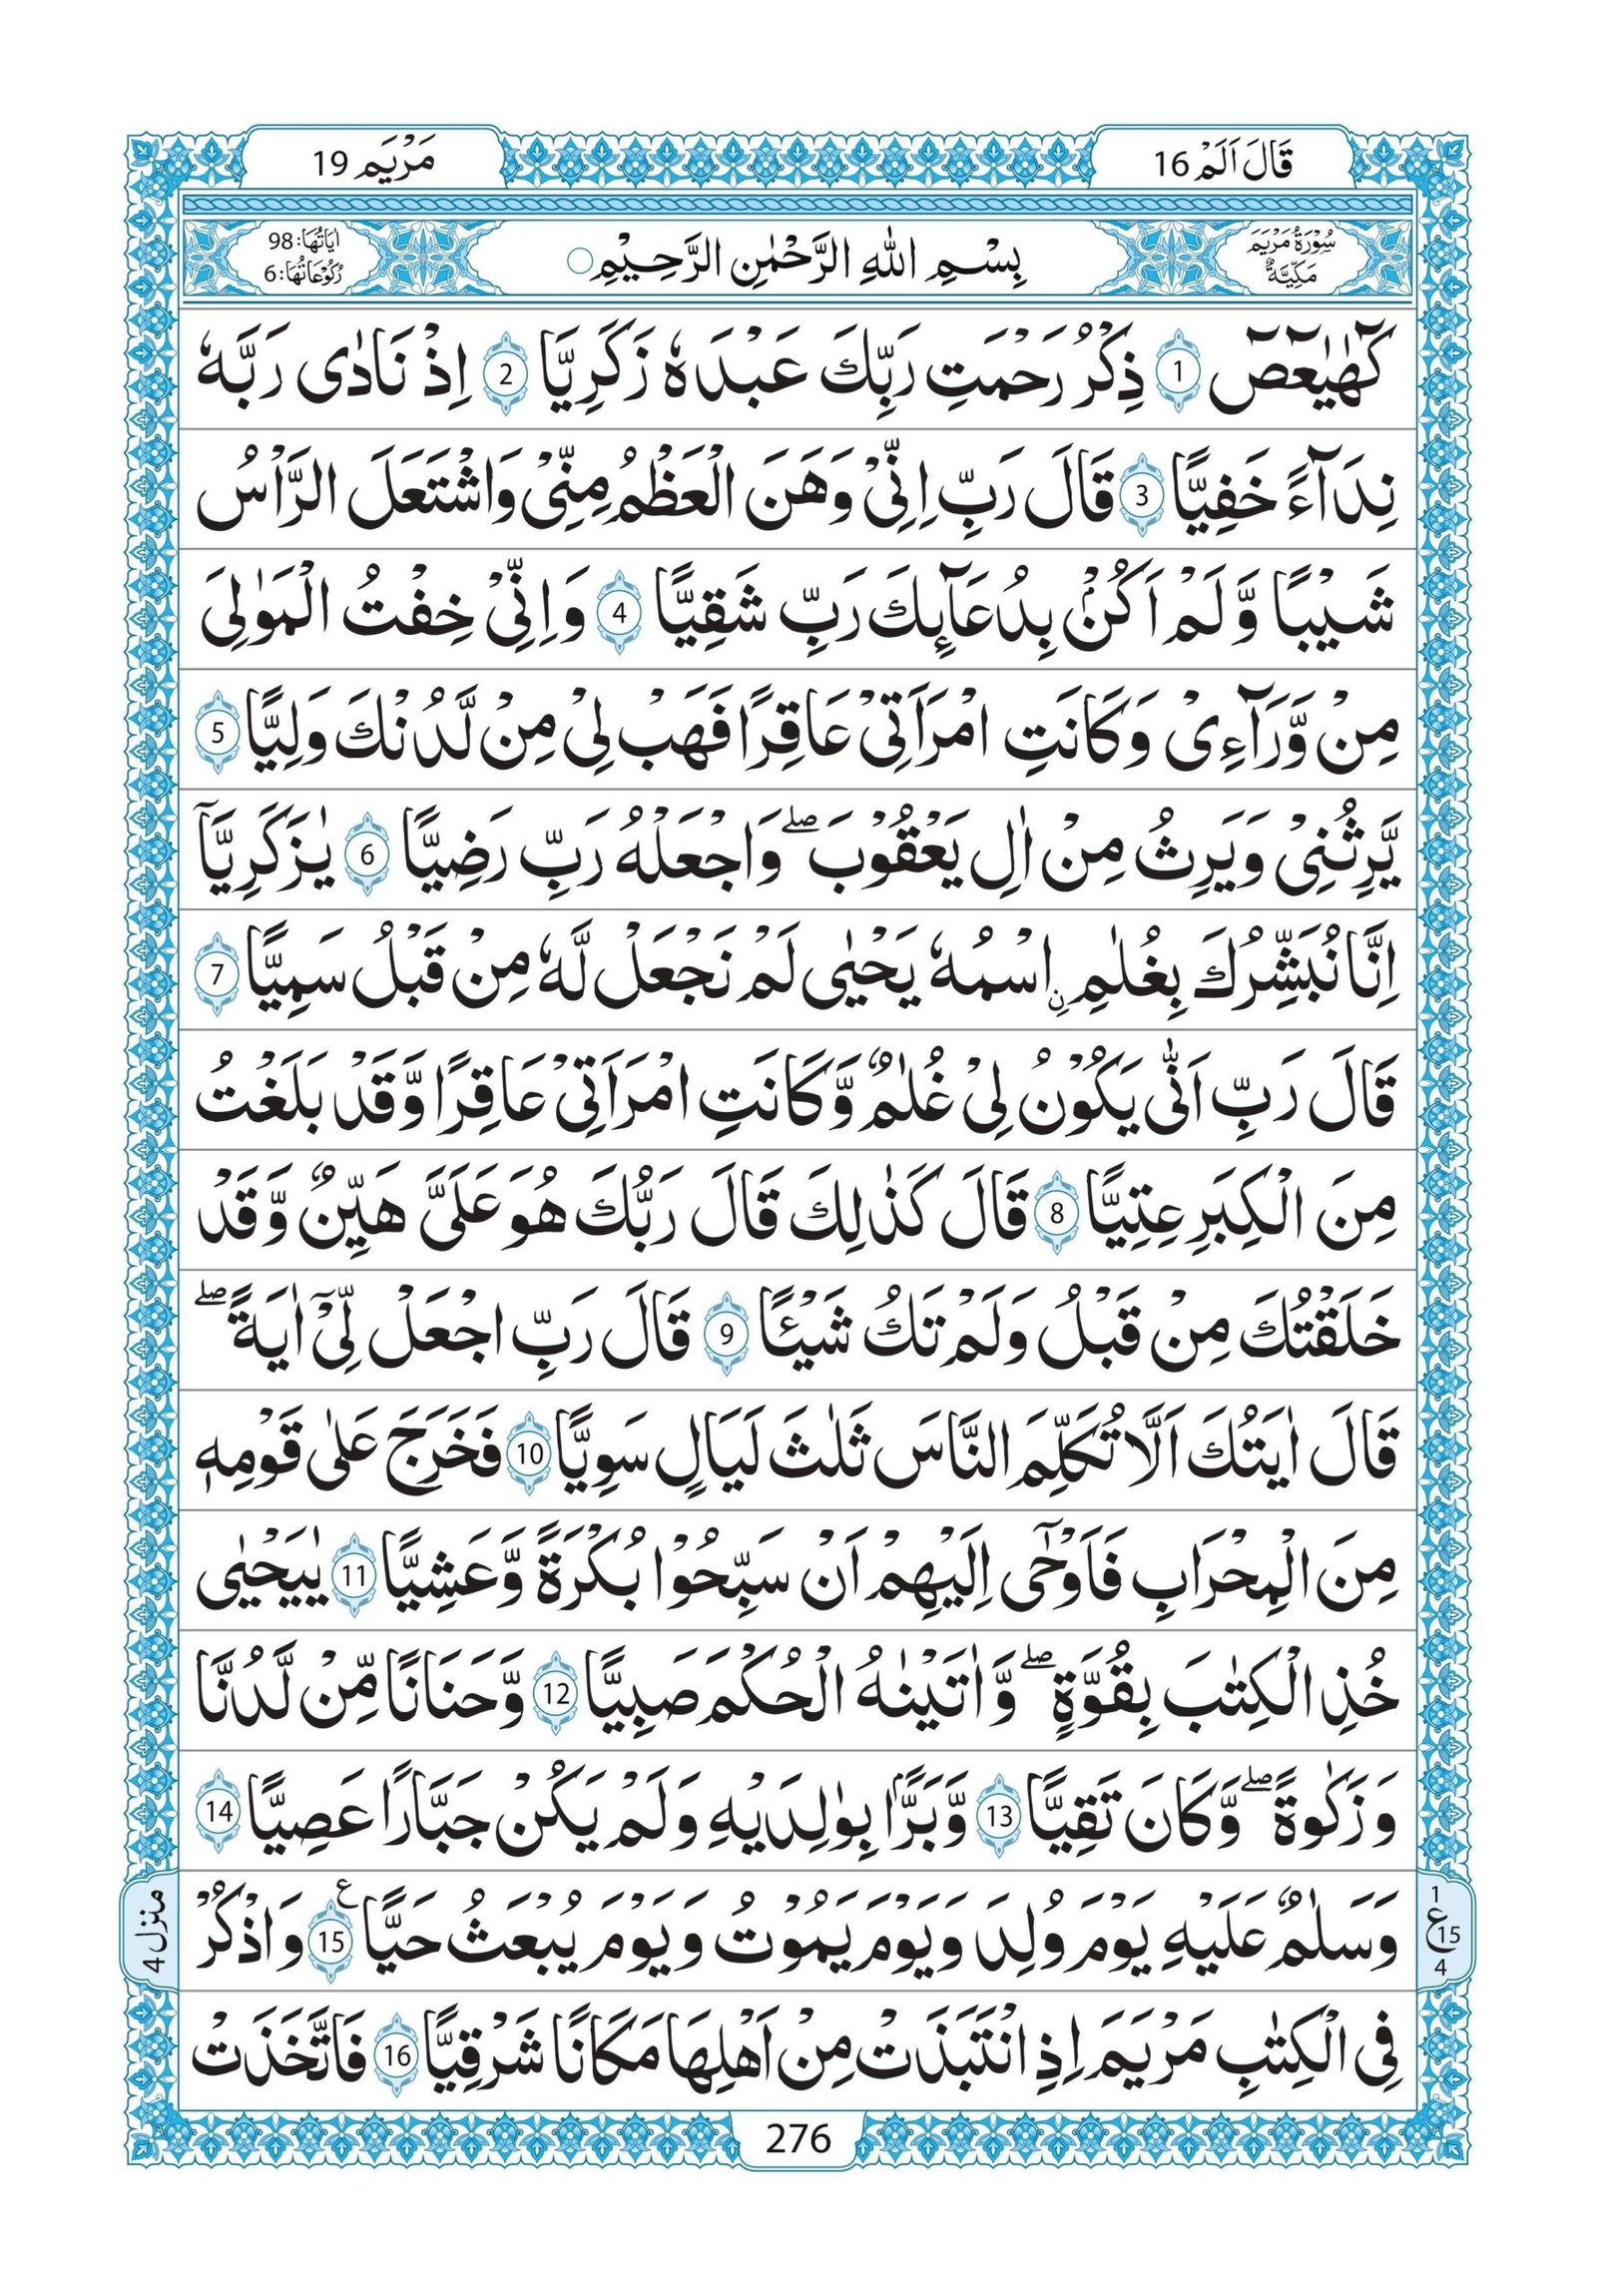 قَالَ اَلَمْ 16
مَرْيَم 19
سُوْرَةُ مَرْيَمَ مَكِّيَّةٌ
بِسْمِ اللهِ الرَّحْمٰنِ الرَّحِيْمِ
اٰيَاتُهَا: 98 رُكُوْعَاتُهَا: 6
كٓهٰيٰعٓصٓ 1 ذِكْرُ رَحْمَتِ رَبِّكَ عَبْدَهٗ زَكَرِيَّا 2 اِذْ نَادٰى رَبَّهٗ
نِدَآءً خَفِيًّا 3 قَالَ رَبِّ اِنِّىْ وَهَنَ الْعَظْمُ مِنِّىْ وَاشْتَعَلَ الرَّاْسُ
شَيْبًا وَّلَمْ اَكُنْۢ بِدُعَآئِكَ رَبِّ شَقِيًّا 4 وَاِنِّىْ خِفْتُ الْمَوٰلِىَ
مِنْ وَّرَآءِىْ وَكَانَتِ امْرَاَتِىْ عَاقِرًا فَهَبْ لِىْ مِنْ لَّدُنْكَ وَلِيًّا 5
يَّرِثُنِىْ وَيَرِثُ مِنْ اٰلِ يَعْقُوْبَ ۖ وَاجْعَلْهُ رَبِّ رَضِيًّا 6 يٰزَكَرِيَّآ
اِنَّا نُبَشِّرُكَ بِغُلٰمِ ۨاسْمُهٗ يَحْيٰى لَمْ نَجْعَلْ لَّهٗ مِنْ قَبْلُ سَمِيًّا 7
قَالَ رَبِّ اَنّٰى يَكُوْنُ لِىْ غُلٰمٌ وَّكَانَتِ امْرَاَتِىْ عَاقِرًا وَّقَدْ بَلَغْتُ
مِنَ الْكِبَرِ عِتِيًّا 8 قَالَ كَذٰلِكَ قَالَ رَبُّكَ هُوَ عَلَىَّ هَيِّنٌ وَّقَدْ
خَلَقْتُكَ مِنْ قَبْلُ وَلَمْ تَكُ شَيْـًٔا 9 قَالَ رَبِّ اجْعَلْ لِّىْٓ اٰيَةً ۖ
قَالَ اٰيَتُكَ اَلَّا تُكَلِّمَ النَّاسَ ثَلٰثَ لَيَالٍ سَوِيًّا 10 فَخَرَجَ عَلٰى قَوْمِهٖ
مِنَ الْمِحْرَابِ فَاَوْحٰٓى اِلَيْهِمْ اَنْ سَبِّحُوْا بُكْرَةً وَّعَشِيًّا 11 يٰيَحْيٰى
خُذِ الْكِتٰبَ بِقُوَّةٍ ۖ وَّاٰتَيْنٰهُ الْحُكْمَ صَبِيًّا 12 وَّحَنَانًا مِّنْ لَّدُنَّا
وَزَكٰوةً ۖ وَّكَانَ تَقِيًّا 13 وَّبَرًّاۢ بِوٰلِدَيْهِ وَلَمْ يَكُنْ جَبَّارًا عَصِيًّا 14
وَسَلٰمٌ عَلَيْهِ يَوْمَ وُلِدَ وَيَوْمَ يَمُوْتُ وَيَوْمَ يُبْعَثُ حَيًّا ع 15 وَاذْكُرْ
فِى الْكِتٰبِ مَرْيَمَ اِذِ انْتَبَذَتْ مِنْ اَهْلِهَا مَكَانًا شَرْقِيًّا 16 فَاتَّخَذَتْ
1 ع 15 4
منزل 4
276